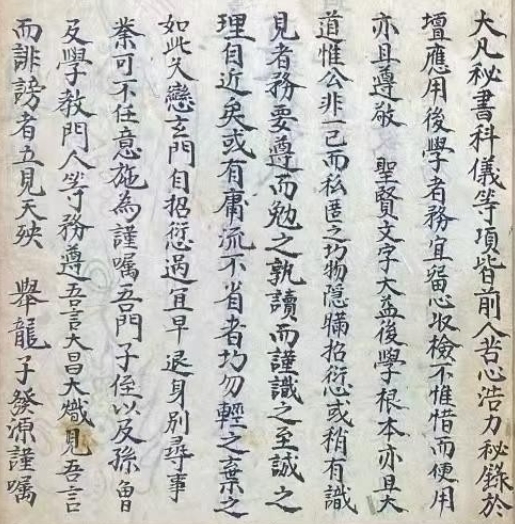 大凡秘書科儀等項皆前人苦心浩力秘錄於
壇應用後學者務宜留心收檢不惟惜而便用
亦且遵敬　聖賢文字大益後學根本亦且大
道惟公非一己而私匿之切物隱瞞招愆或稍有識
見者務要遵而勉之孰讀而謹識之至誠之
理自近矣或有庸流不省者切勿輕之棄之
如此久戀玄門自招愆過宜早退身別尋事
業可不任意施為謹嘱吾門子侄以及孫曾
及學教門人等務遵吾言大昌大熾見吾言
而誹謗者立見天殃　舉龍子發源謹嘱